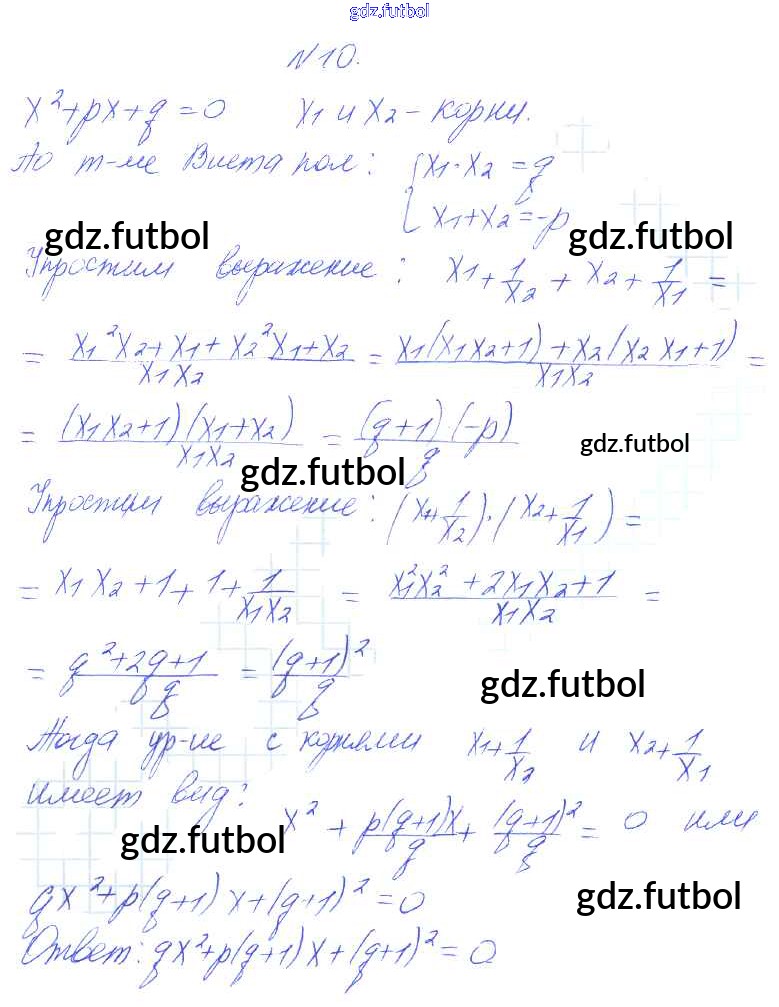 gdz.futbol
N10.
x²+px+q=0 x₁ и x₂ – корни.
По т-ме Виета пол: { x₁·x₂ = q
x₁+x₂=-p
gdz.futbol gdz.futbol
Упростим выражение: x₁+1/x₂ + x₂+1/x₁ =
= (x₁²x₂+x₁+x₂²x₁+x₂)/(x₁x₂) = (x₁(x₁x₂+1)+x₂(x₂x₁+1))/(x₁x₂) =
= (x₁x₂+1)(x₁+x₂)/(x₁x₂) = (q+1)·(-p)/q
gdz.futbol
gdz.futbol
Упростим выражение: (x₁+1/x₂)·(x₂+1/x₁) =
= x₁x₂+1+1+1/(x₁x₂) = (x₁²x₂²+2x₁x₂+1)/(x₁x₂) =
= (q²+2q+1)/q = (q+1)²/q
gdz.futbol
Тогда ур-ие с корнями x₁+1/x₂ и x₂+1/x₁
имеет вид: x² + p(q+1)x/q + (q+1)²/q = 0 или
gdz.futbol
qx²+p(q+1)x+(q+1)²=0
gdz.futbol
Ответ: qx²+p(q+1)x+(q+1)²=0